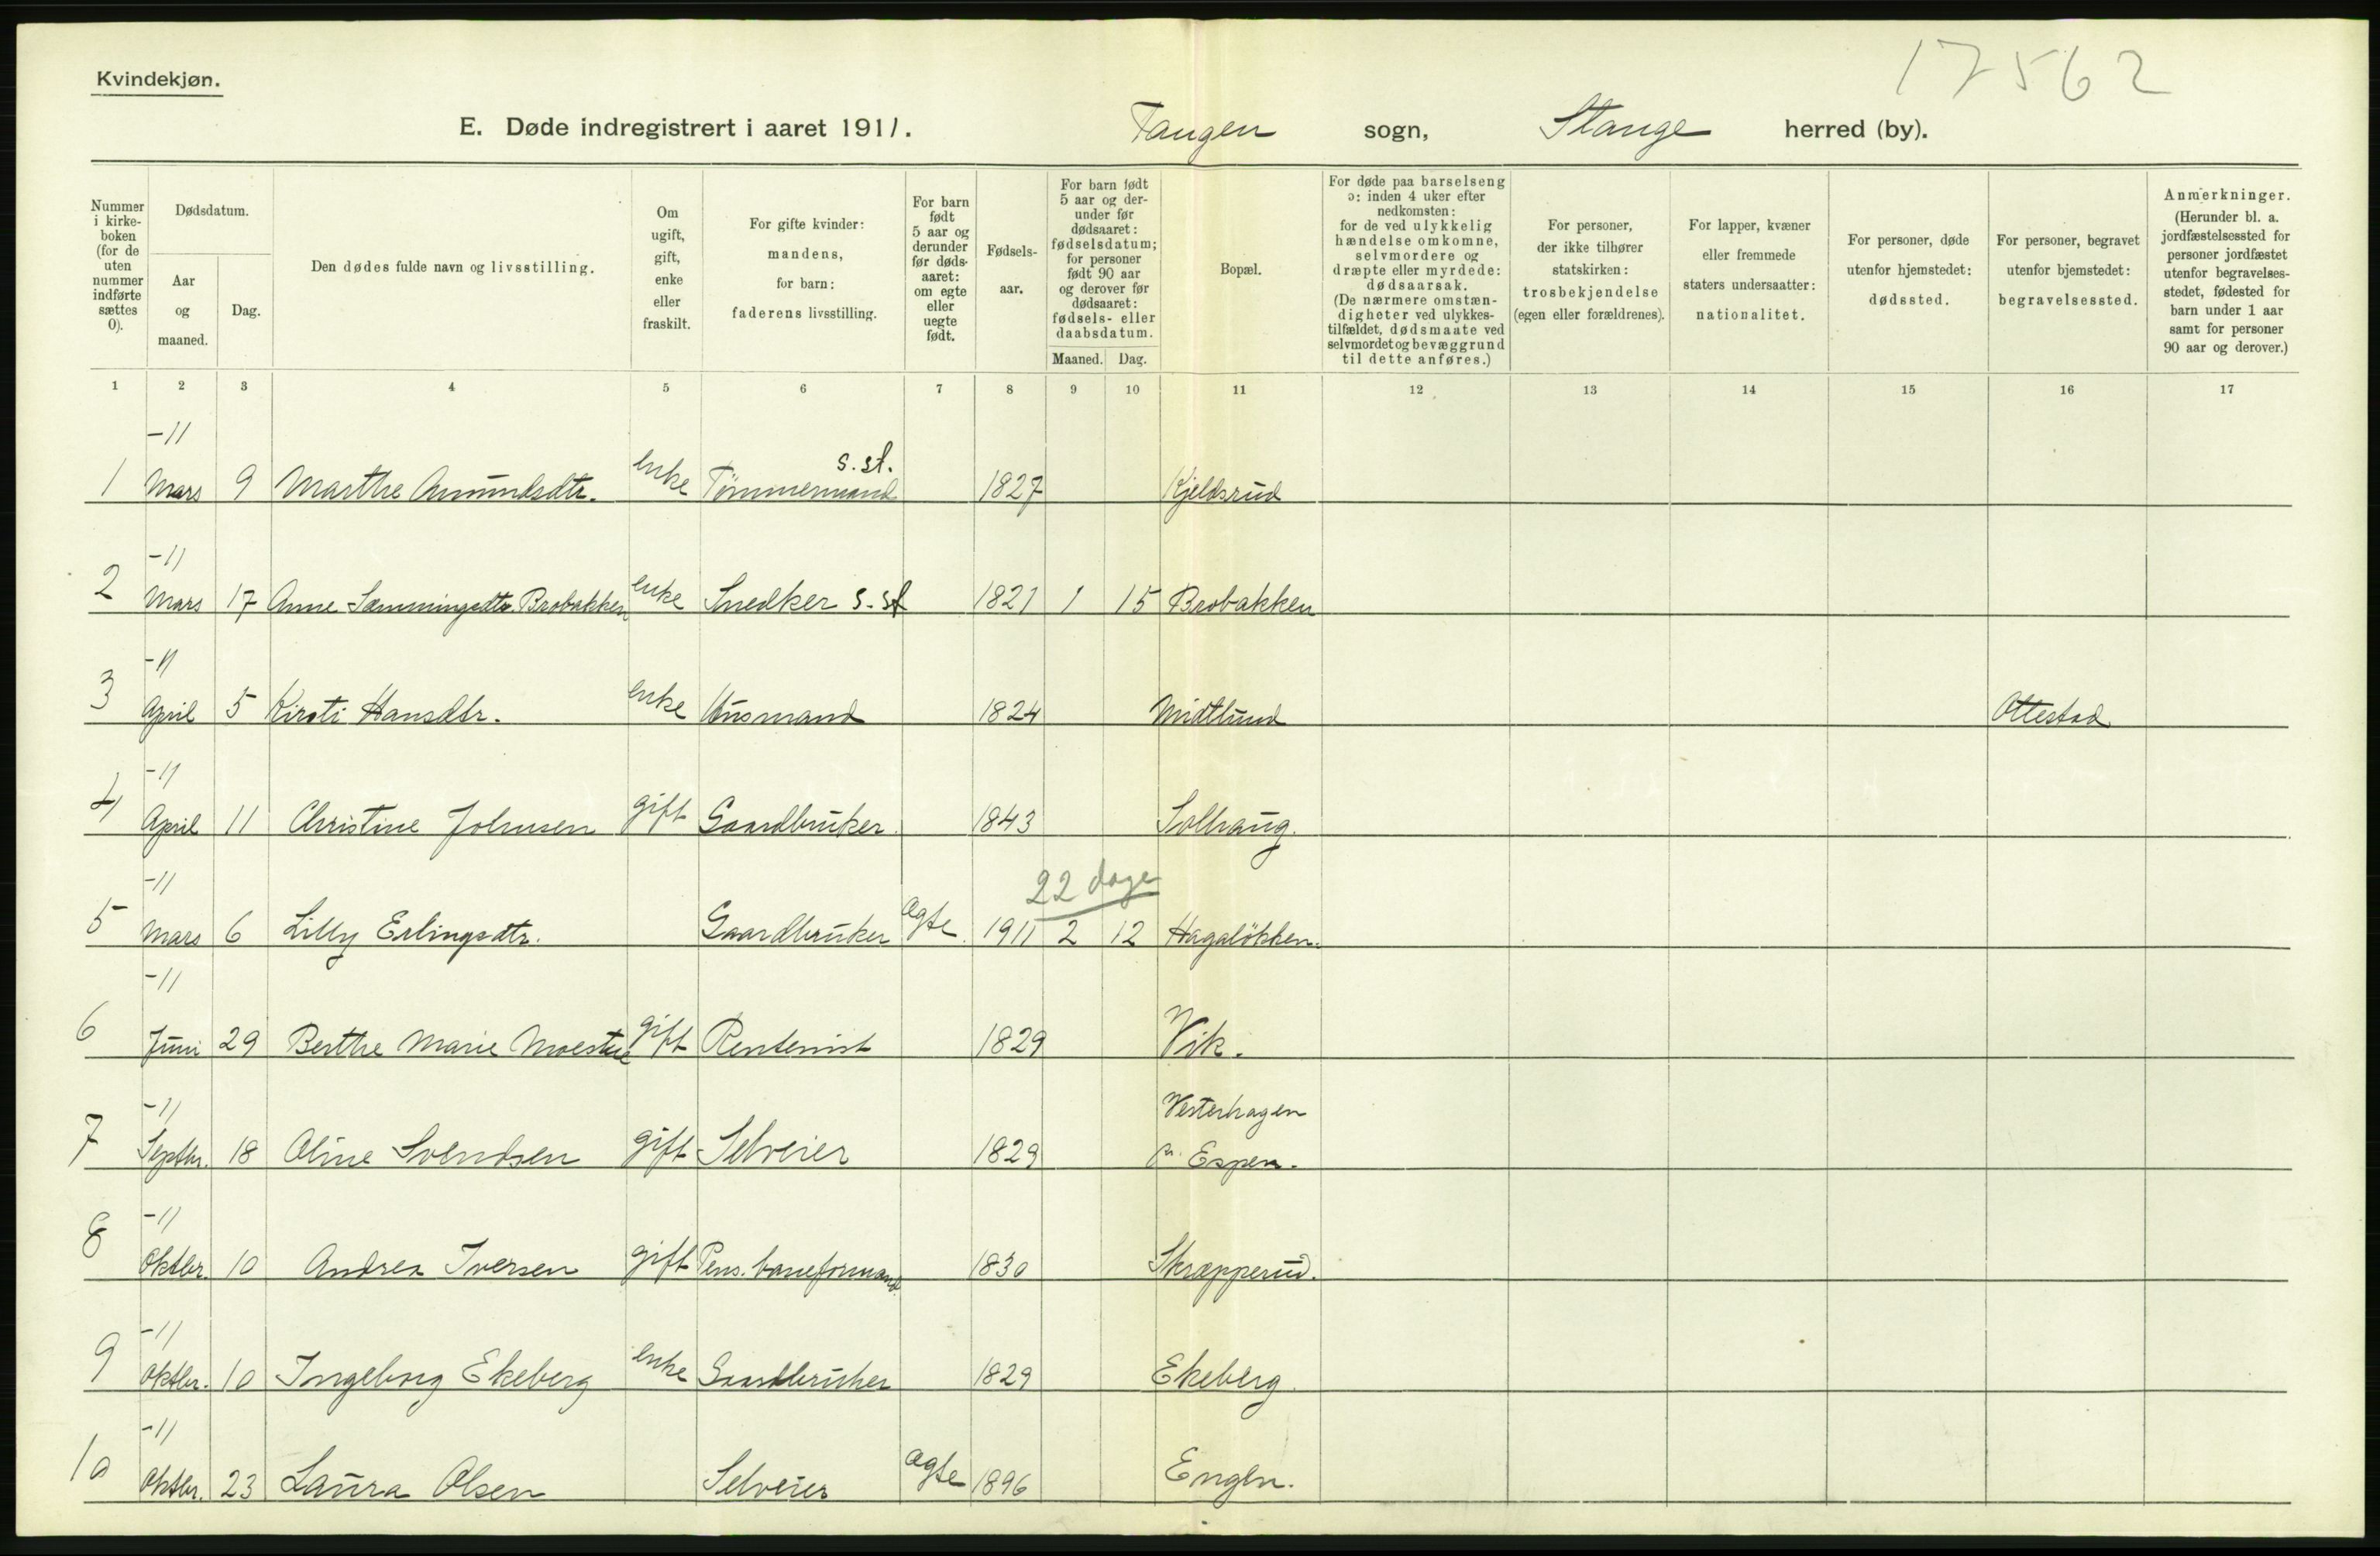 17562
Kvindekjøn.
E. Døde indregistrert i aaret 1911. Tangen sogn, Stange herred (by).
Nummer i kirke-boken (for de uten nummer indførte sættes 0).
Dødsdatum.
Aar og maaned.
Dag.
Den dødes fulde navn og livsstilling.
Om ugift, gift, enke eller fraskilt.
For gifte kvinder: mandens, for barn: faderens livsstilling.
For barn født 5 aar og derunder før døds-aaret: om egte eller uegte født.
Fødsels-aar.
For barn født 5 aar og der-under før dødsaaret: fødselsdatum; for personer født 90 aar og derover før dødsaaret: fødsels- eller daabsdatum.
Maaned. Dag.
Bopæl.
For døde paa barselseng ɔ: inden 4 uker efter nedkomsten: for de ved ulykkelig hændelse omkomne, selvmordere og dræpte eller myrdede: dødsaarsak. (De nærmere omstæn-digheter ved ulykkes-tilfældet, dødsmaate ved selvmordet og bevæggrund til dette anføres.)
For personer, der ikke tilhører statskirken: trosbekjendelse (egen eller forældrenes).
For lapper, kvæner eller fremmede staters undersaatter: nationalitet.
For personer, døde utenfor hjemstedet: dødssted.
For personer, begravet utenfor bjemstedet: begravelsessted.
Anmerkninger. (Herunder bl. a. jordfæstelsessted for personer jordfæstet utenfor begravelses-stedet, fødested for barn under 1 aar samt for personer 90 aar og derover.)
1 2 3 4 5 6 7 8 9 10 11 12 13 14 15 16 17
-11
1 Mars 9 Marthe Amundsdtr. enke Tømmermand s. st. 1827 Kjeldsrud
-11
2 Mars 17 Anne Sæmmingsdtr Brobakken enke Snedker s. st 1821 1 15 Brobakken
-11
3 April 5 Kirsti Hansdtr. enke Husmand 1824 Midtlund Ottestad
-11
4 April 11 Christine Johnsen gift Gaardbruker. 1843 Solhaug.
-11 22 dage
5 Mars 6 Lilly Erlingsdtr. Gaardbruker Ægte 1911 2 12 Hagaløkken.
-11
6 Juni 29 Berthe Marie Moestue gift Rentenist 1829 Vik.
-11 Vesterhagen
7 Septbr. 18 Oline Svendsen gift Selveier 1829 Espen.
-11
8 Oktbr. 10 Andrea Iversen gift Pens. baneformand 1830 Skræpperud.
-11
9 Oktbr. 10 Ingeborg Ekeberg enke Gaardbruker 1829 Ekeberg.
-11
10 Oktbr. 23 Laura Olsen Selveier Ægte 1896 Engen.